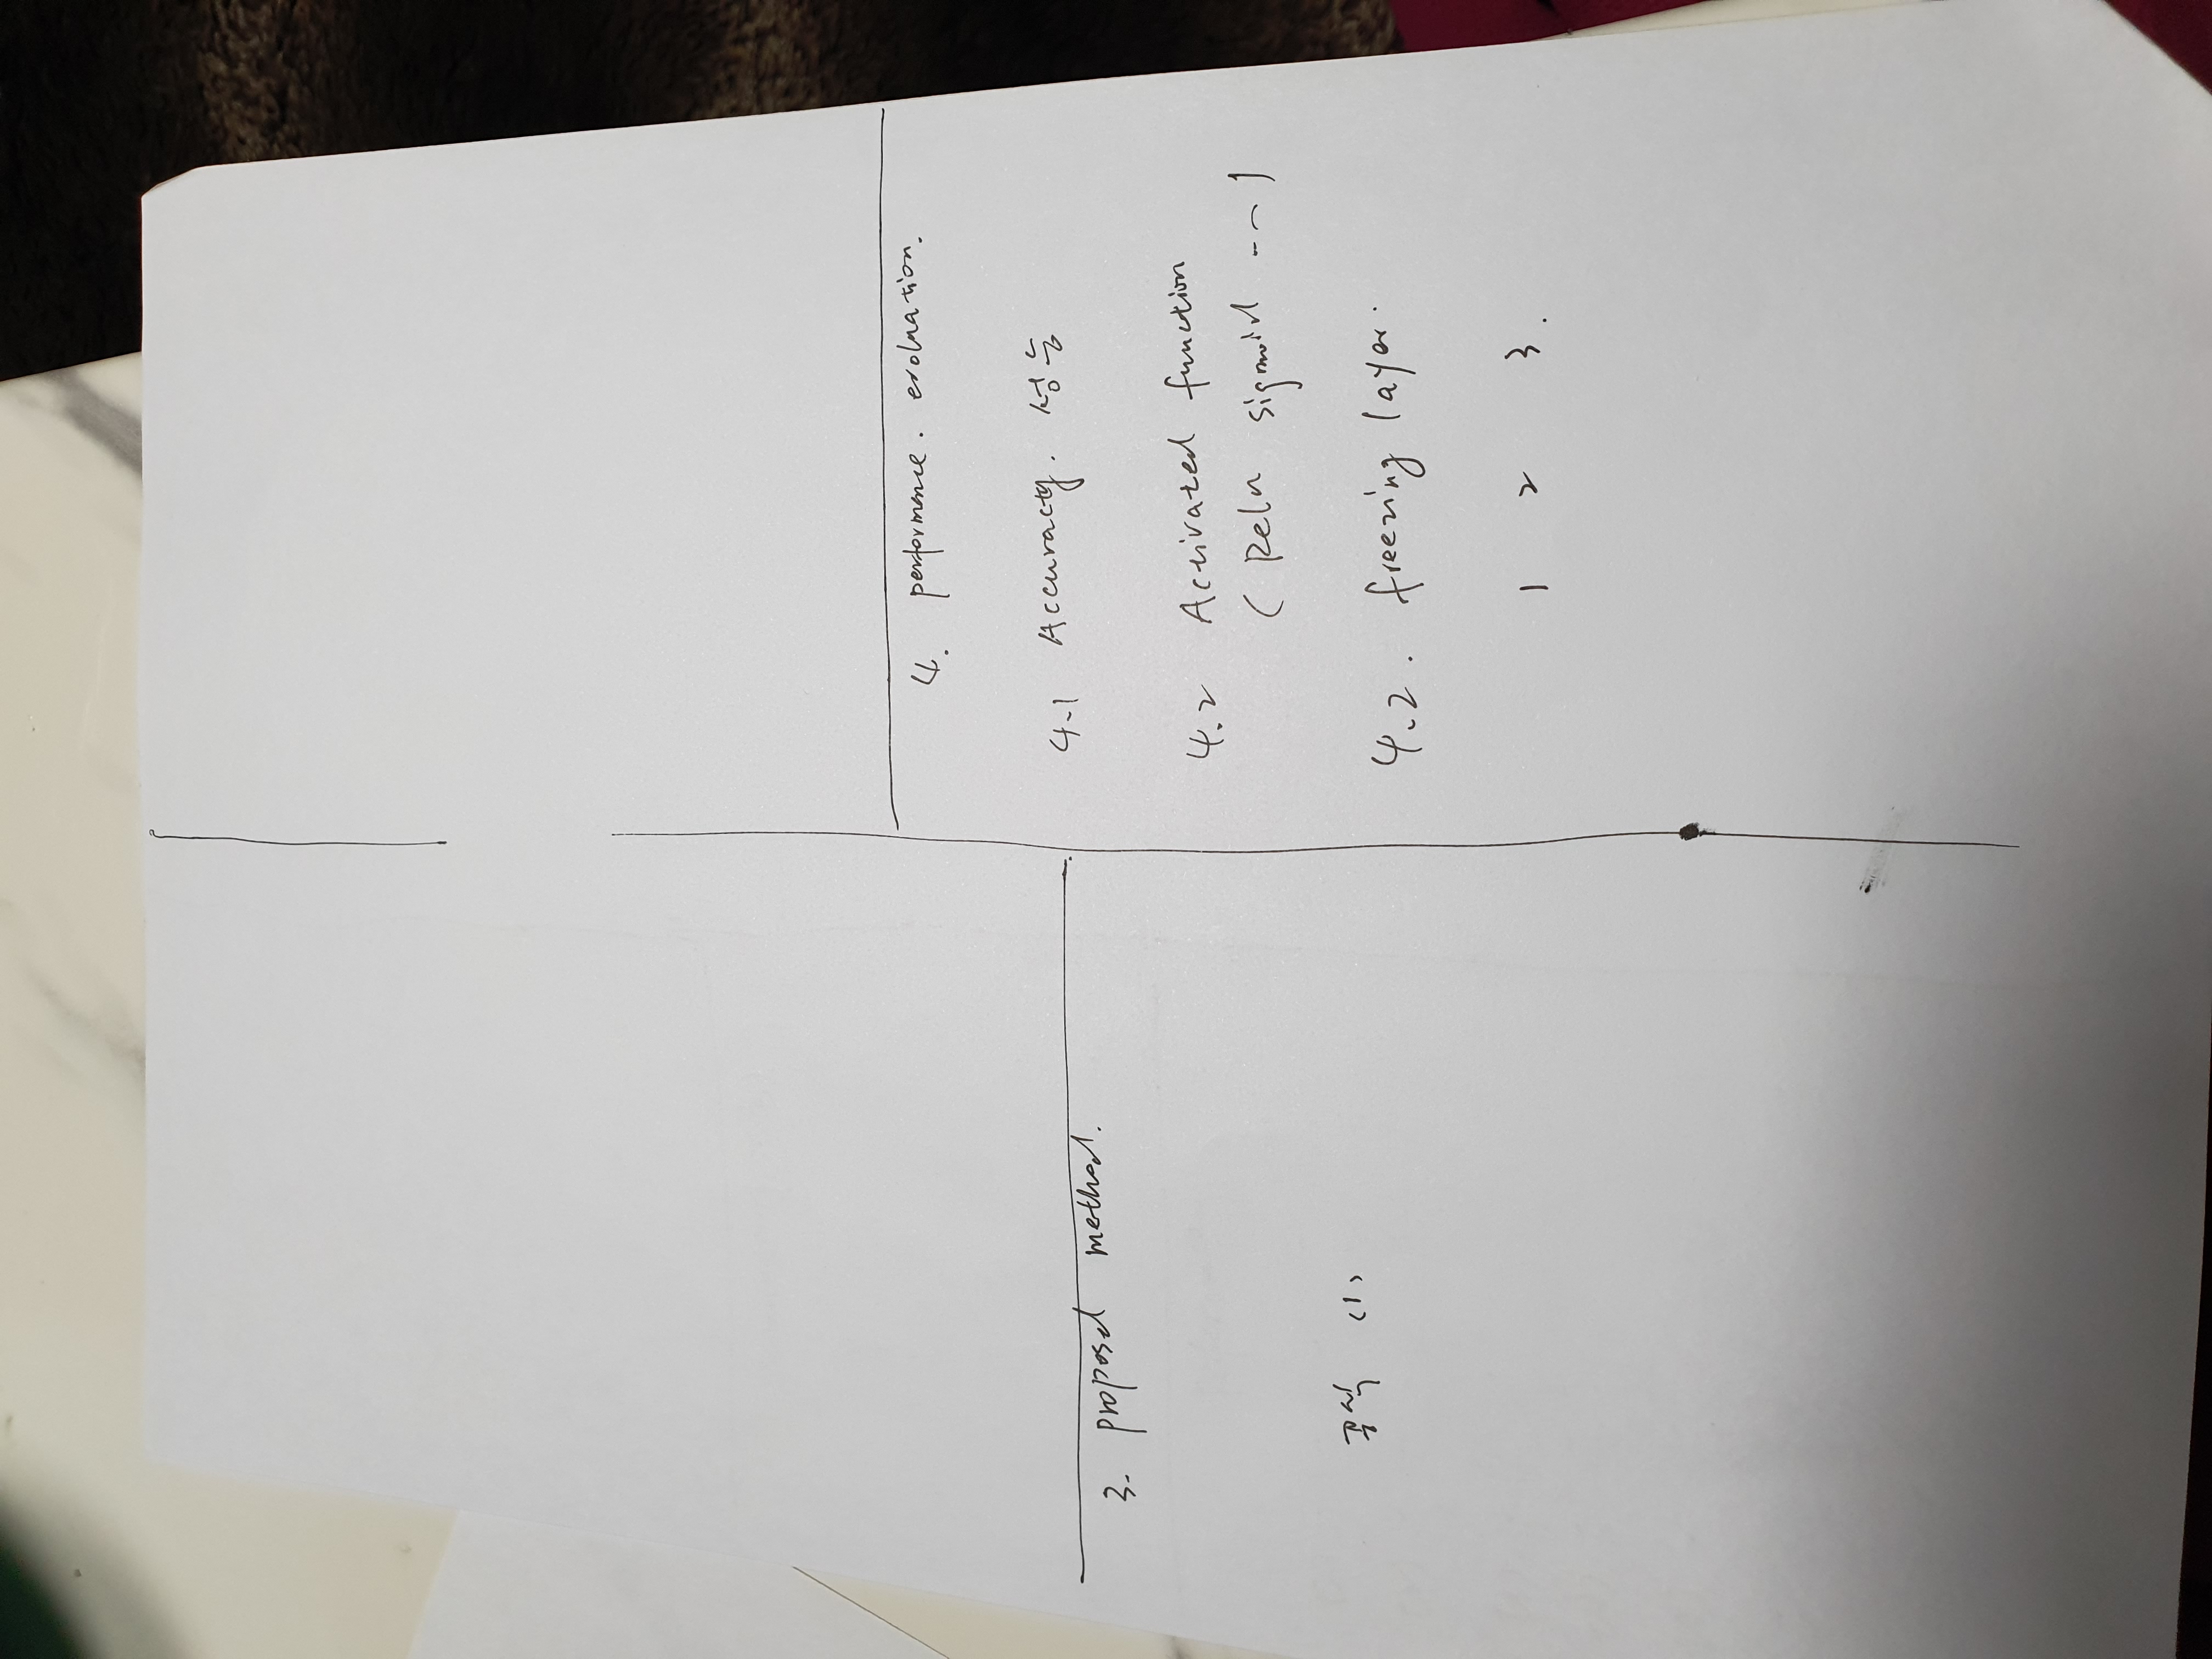 3. proposed method.
공식 (1)
4. performance. evaluation.
4.1 Accuracy. 성능
4.2 Activated function
( Relu sigmoid --- )
4.2. freezing layer.
1 2 3.